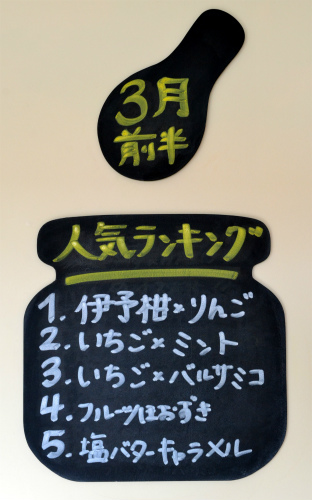 3月
前半
人気ランキング
1. 伊予柑×りんご
2. いちご×ミント
3. いちご×バルサミコ
4. フルーツほおずき
5. 塩バターキャラメル